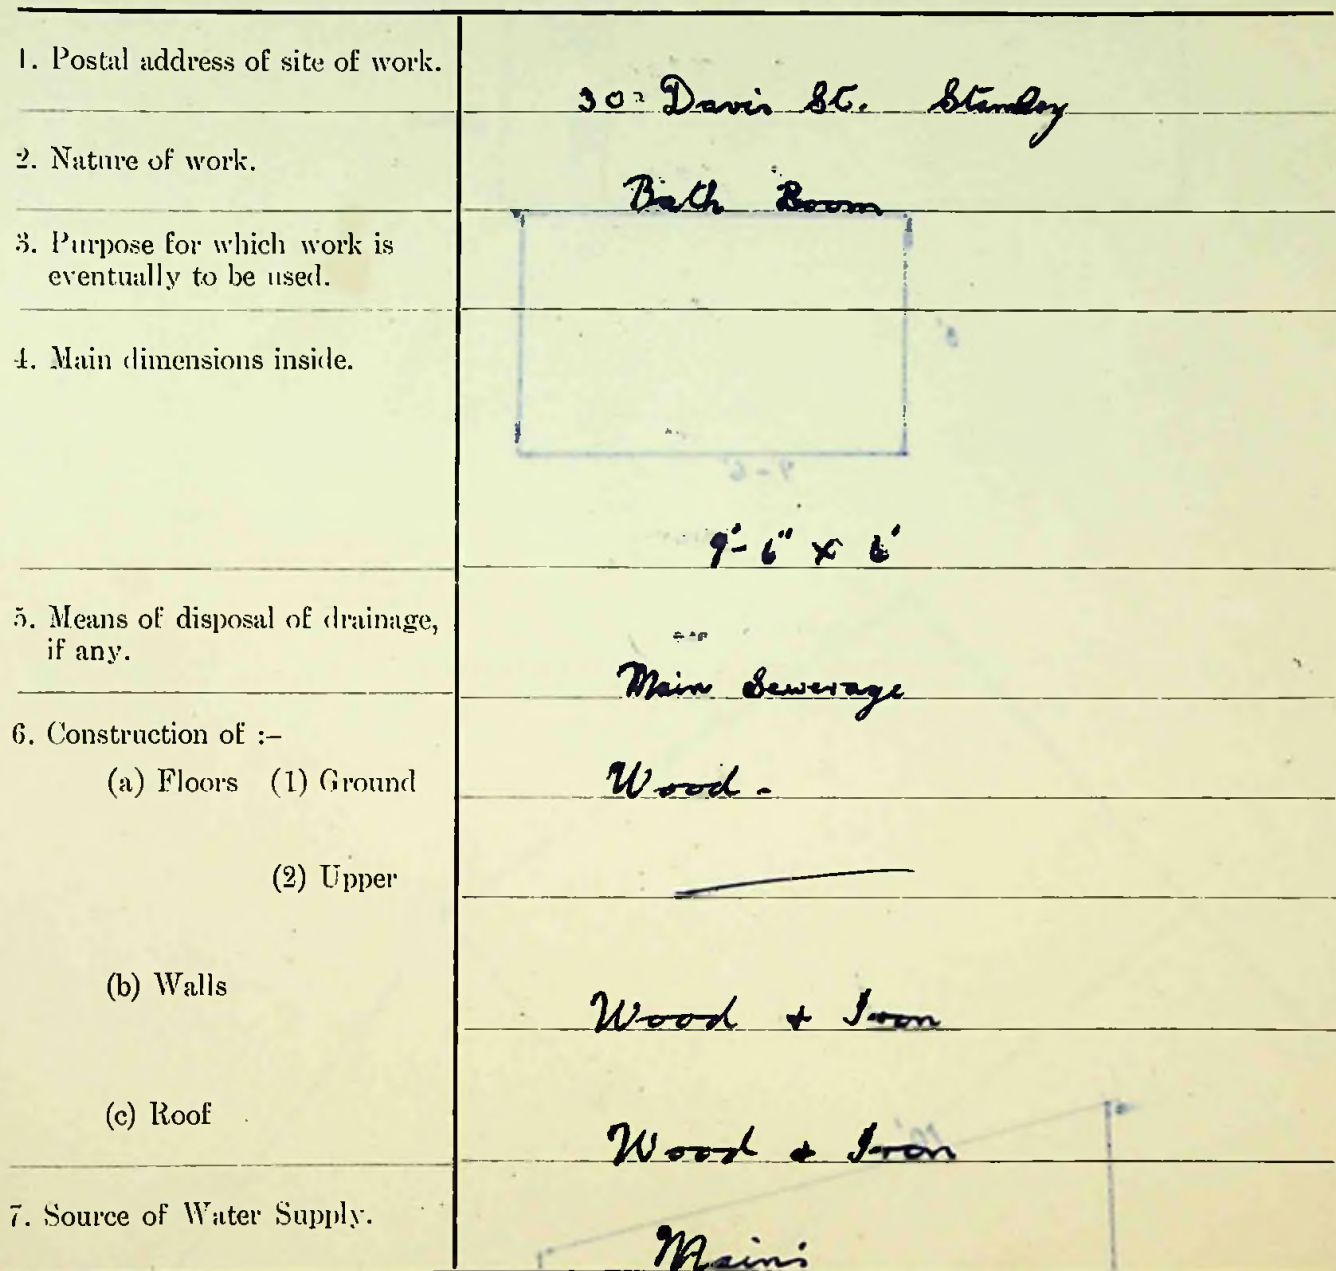 1. Postal address of site of work.
Davis St. Stanley
2. Nature of work.
Bath Room
3. Purpose for which work is
eventually to be used.
4. Main dimensions inside.
9'-6" x 6'
5. Means of disposal of drainage,
if any.
Main Sewerage
6. Construction of :-
(a) Floors (1) Ground
Wood -
(2) Upper
(b) Walls
Wood + Iron
(c) Roof
Wood + Iron
7. Source of Water Supply.
Mains